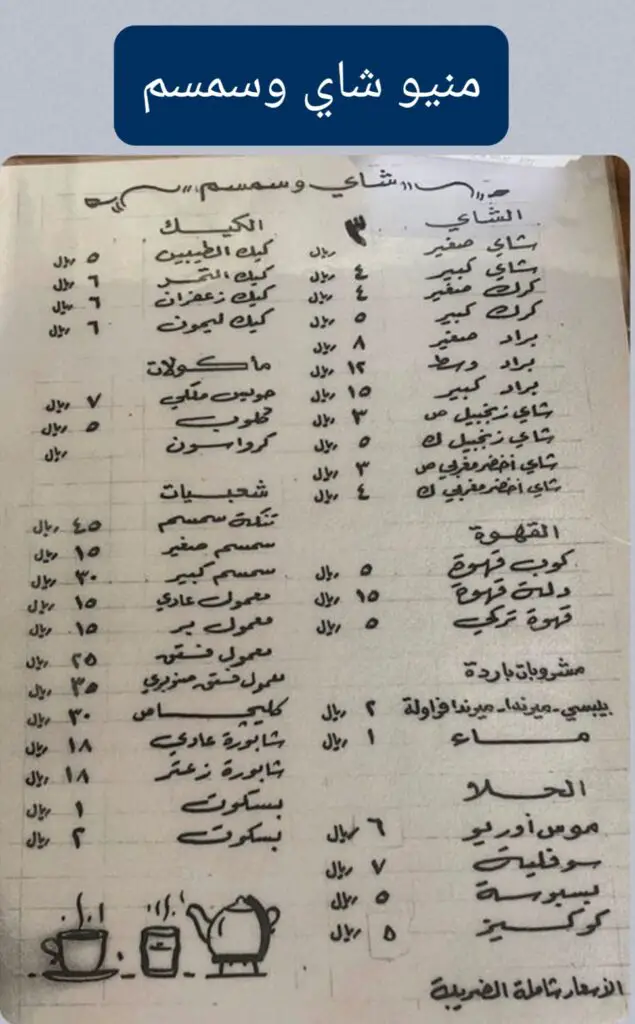 منيو شاي وسمسم
شاي وسمسم
الشاي
شاي صغير ٣ ريال
شاي كبير ٤ ريال
كرك صغير ٤ ريال
كرك كبير ٥ ريال
براد صغير ٨ ريال
براد وسط ١٢ ريال
براد كبير ١٥ ريال
شاي زنجبيل ص ٣ ريال
شاي زنجبيل ك ٥ ريال
شاي أخضر مغربي ص ٣ ريال
شاي أخضر مغربي ك ٤ ريال
القهوة
كوب قهوة ٥ ريال
دلة قهوة ١٥ ريال
قهوة تركي ٥ ريال
مشروبات باردة
بيبسي - ميرندا - ميرندا فراولة ٢ ريال
مـاء ١ ريال
الحلا
موس أوريو ٦ ريال
سوفلية ٧ ريال
بسبوسة ٥ ريال
كوكيز ٥ ريال
الأسعار شاملة الضريبة
الكيك
كيك الطيبين ٥ ريال
كيك التمر ٦ ريال
كيك زعفران ٦ ريال
كيك ليمون ٦ ريال
مأكولات
ملكي ٧ ريال
كلوب ٥ ريال
كرواسون ريال
شعبيات
تنكة سمسم ٤٥ ريال
سمسم صغير ١٥ ريال
سمسم كبير ٣٠ ريال
معمول عادي ١٥ ريال
معمول بر ١٥ ريال
معمول فستق ٢٥ ريال
معمول فستق صنوبري ٣٥ ريال
كليجا ص ٣٠ ريال
شابورة عادي ١٨ ريال
شابورة زعتر ١٨ ريال
بسكوت ١ ريال
بسكوت ٢ ريال